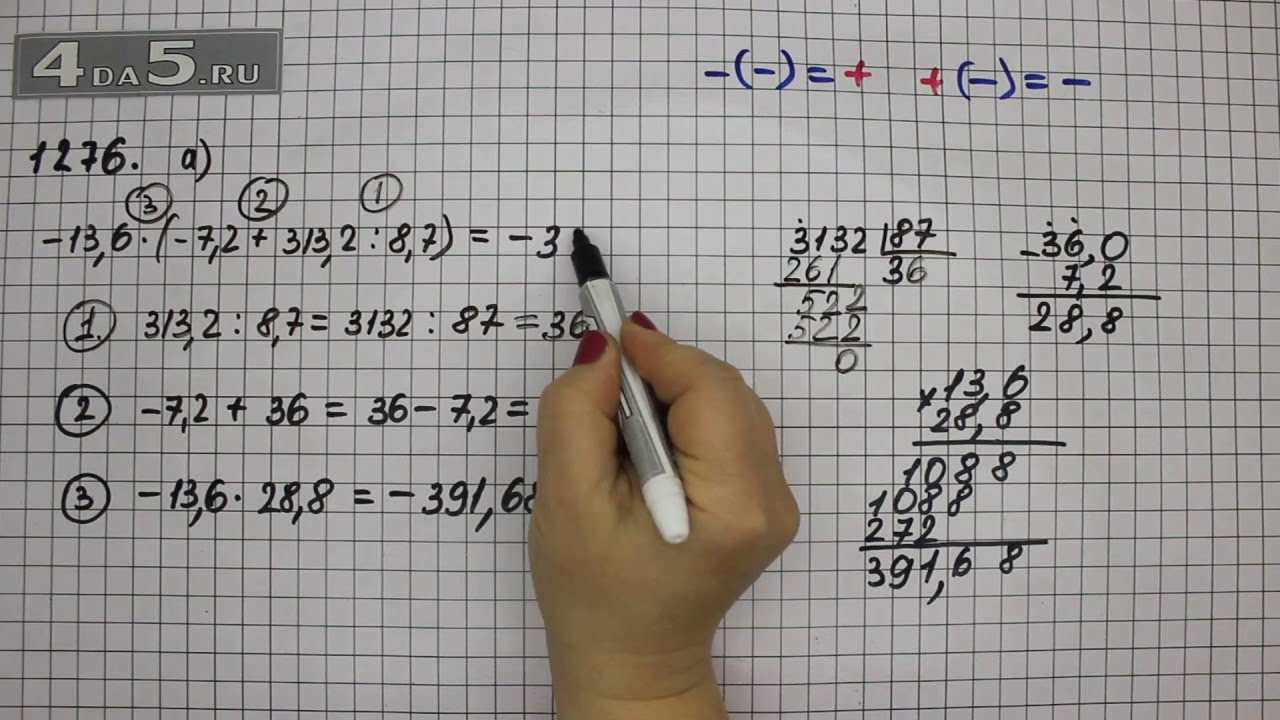 4DA5.RU
-(-) = + +(-) = -
1276. а)
3 2 1
-13,6·(-7,2 + 313,2 : 8,7) = -3
1 313,2 : 8,7 = 3132 : 87 = 36
2 -7,2 + 36 = 36 - 7,2 =
3 -13,6 · 28,8 = -391,68
3132 87
261 36
522
522
0
-36,0
7,2
28,8
×13,6
28,8
1088
1088
272
391,68